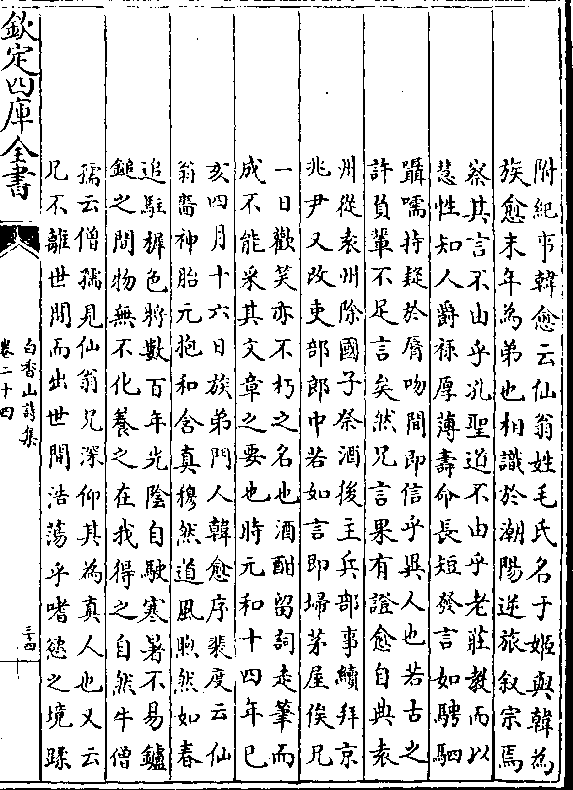 附紀事韓愈云仙翁姓毛氏名于姬與韓為
族愈末年為弟也相識於潮陽逆旅叙宗焉
察其言不由乎孔聖道不由乎老莊教而以
慧性知人爵祿厚薄壽命長短發言如騁駟
躡嚅持疑於脣吻間即信乎異人也若古之
許負輩不足言矣然兄言果有證愈自典袁
州從袁州除國子祭酒後主兵部事續拜京
兆尹又改吏部郎巾若如言即埽茅屋俟兄
一日歡笑亦不朽之名也酒酣留詞走筆而
成不能采其文章之要也時元和十四年已
亥四月十六日族弟門人韓愈序裴度云仙
翁畜神胎元抱和含真穆然道風煦然如春
追駐樨色將數百年光陰自駛寒暑不易鑪
鎚之間物無不化養之在我得之自然牛僧
孺云僧孺見仙翁兄深仰其為真人也又云
兄不離世間而出世間浩蕩乎嗜慾之境蹂
欽定四庫全書
白香山詩集
卷二十四
三十四